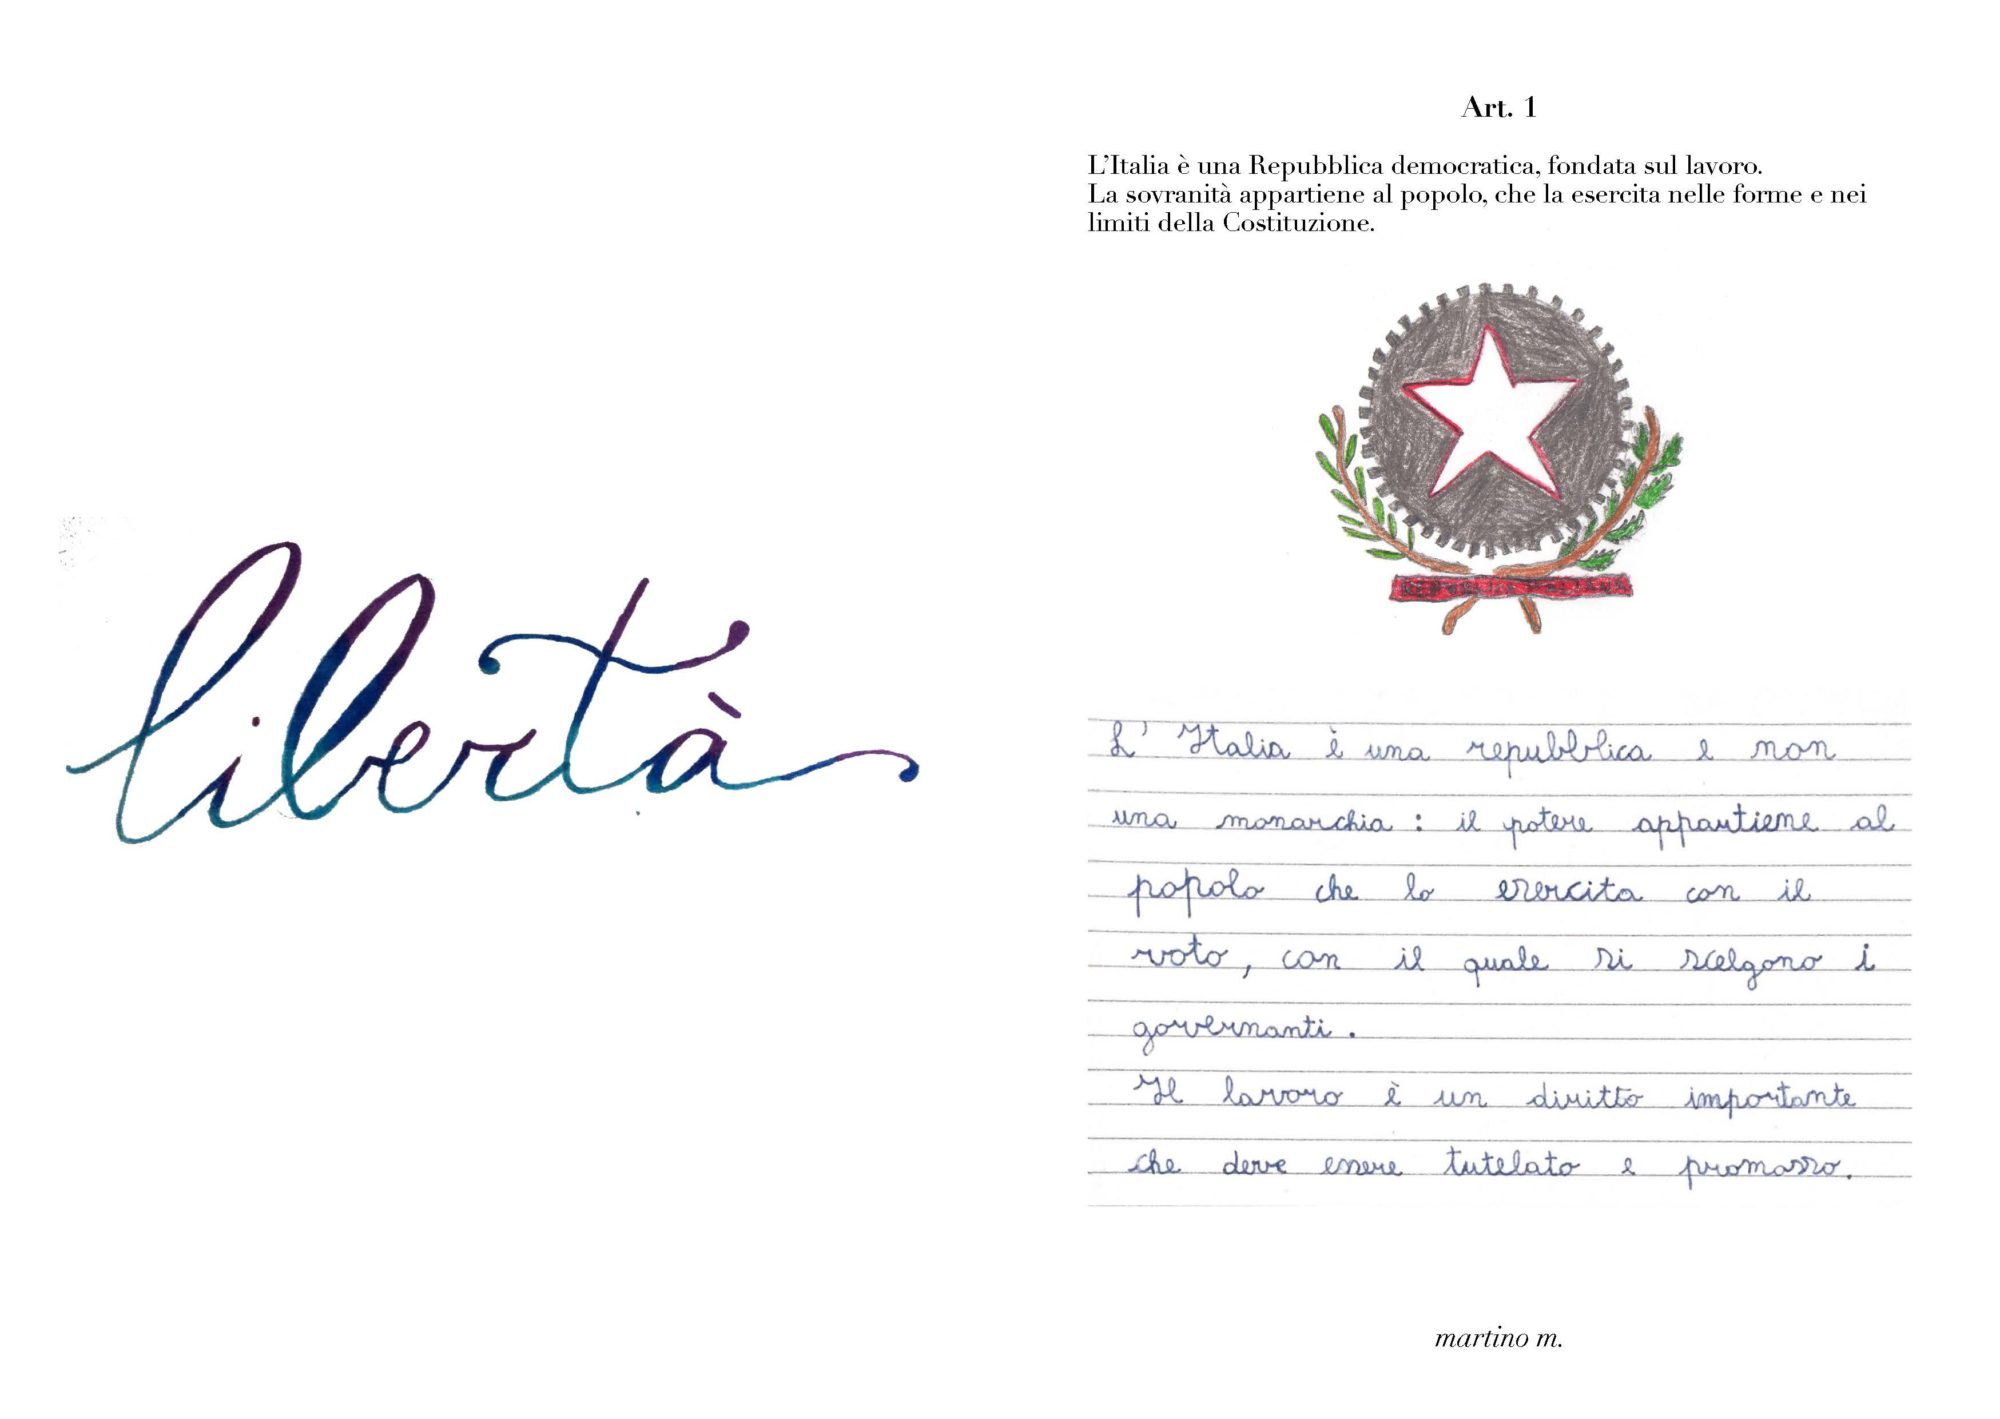 libertà
Art. 1
L'Italia è una Repubblica democratica, fondata sul lavoro.
La sovranità appartiene al popolo, che la esercita nelle forme e nei
limiti della Costituzione.
L' Italia è una repubblica e non
una monarchia : il potere appartiene al
popolo che lo esercita con il
voto, con il quale si scelgono i
governanti.
Il lavoro è un diritto importante
che deve essere tutelato e promosso.
martino m.